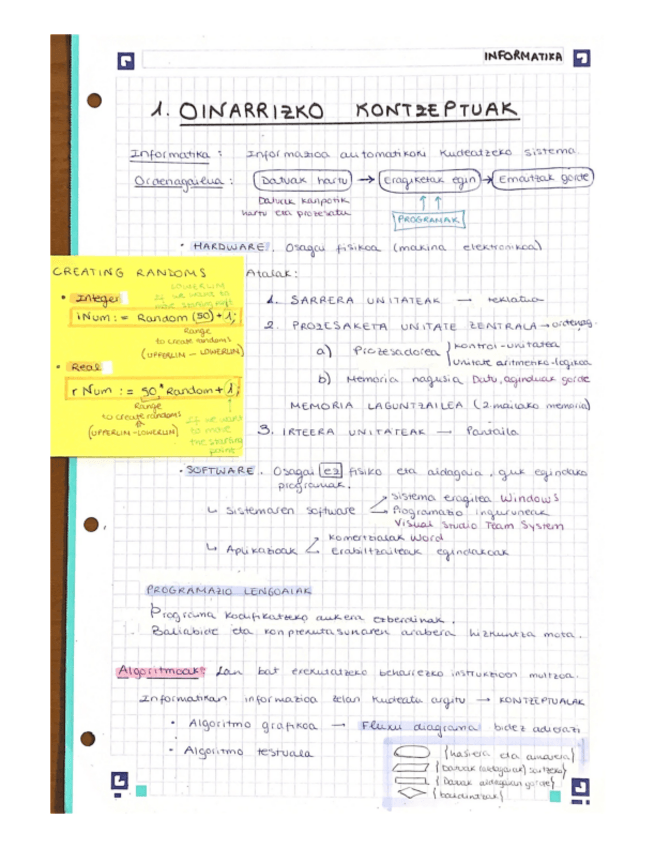 INFORMATIKA
1. OINARRIZKO KONTZEPTUAK
Informatika : Informazioa automatikoki kudeatzeko sistema.
Ordenagailua : Datuak hartu → Eragiketak egin → Emaitzak gorde
Datuak kanpotik
hartu eta prozesatu
PROGRAMAK
• HARDWARE. Osagai fisikoa (makina elektronikoa)
Atalak :
1. SARRERA UNITATEAK — teklatua
2. PROZESAKETA UNITATE ZENTRALA → ordenag.
a) Prozesadorea { kontrol-unitatea
Unitate aritmetiko-logikoa
b) Memoria nagusia Datu, aginduak gorde
MEMORIA LAGUNTZAILEA (2. mailako memoria)
3. IRTEERA UNITATEAK — Pantaila
CREATING RANDOMS
• Integer
LOWERLIM
If we want to
move starting point
iNum := Random (50) + 1;
Range
to create randoms
(UPPERLIM - LOWERLIM)
• Real
rNum := 50 * Random + 1;
Range
to create randoms
(UPPERLIM - LOWERLIM)
If we want
to move
the starting
point
• SOFTWARE. Osagai ez fisiko eta aldagaia, guk egindako
programak.
↳ Sistemaren software
Sistema eragilea Windows
Programazio inguruneak
Visual Studio Team System
↳ Aplikazioak
Komertzialak Word
Erabiltzaileak egindakoak
PROGRAMAZIO LENGOAIAK
Programa kodifikatzeko aukera ezberdinak.
Baliabide eta konprenutasunaren arabera hizkuntza mota.
Algoritmoak: Lan bat exekutatzeko beharrezko instrukzioen multzoa.
Informatikan informazioa zelan kudeatu argitu → KONTZEPTUALAK
• Algoritmo grafikoa → Fluxu diagrama bidez adierazi
• Algoritmo testuala
{hasiera eta amaiera}
{Datuak (aldagaiak) sortzeko}
{Datuak aldagaian gorde}
{baldintzak}